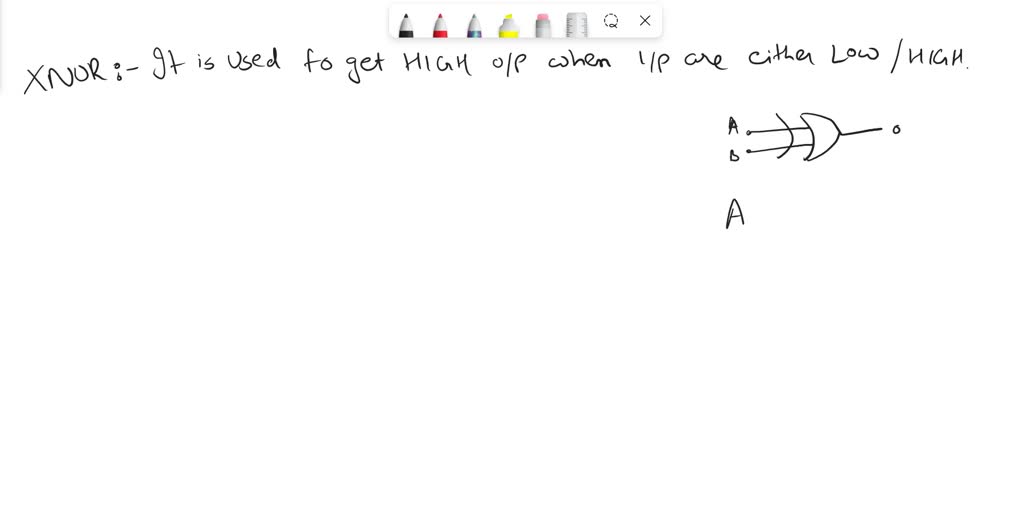 XNOR :- It is used to get HIGH O/P when I/P are either LOW / HIGH.
A
B
o
A